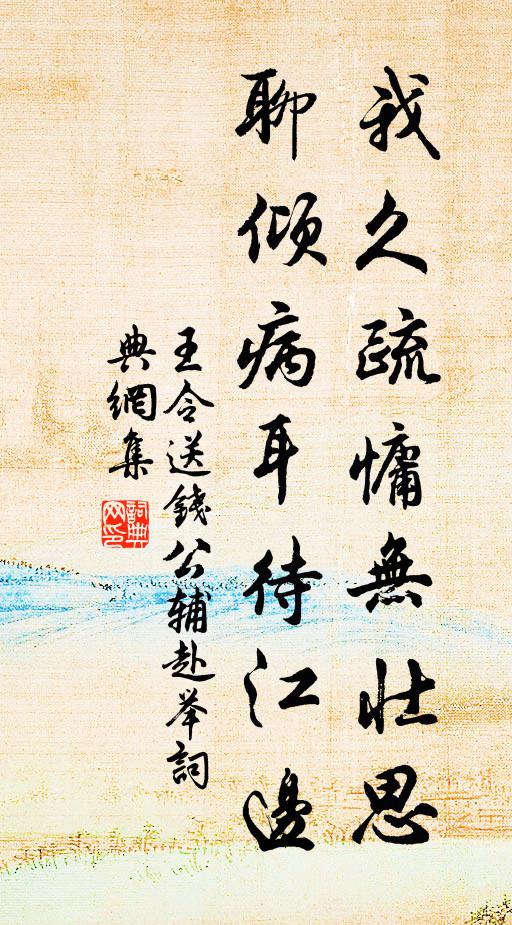 我久疏慵無壮思
聊倾病耳待江邊
王令送錢公辅赴举詞
典網集
詞典網印